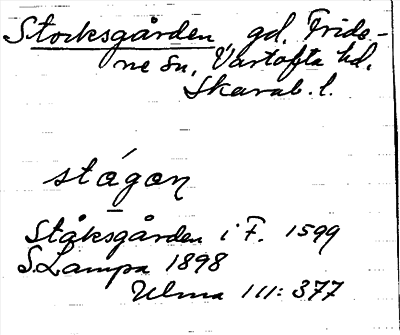 Storksgården, gd. Fride-
ne sn, Vartofta hd.
Skarab. l.
stágon
Ståksgården i F. 1599
S.Lampa 1898
Ulma III: 377